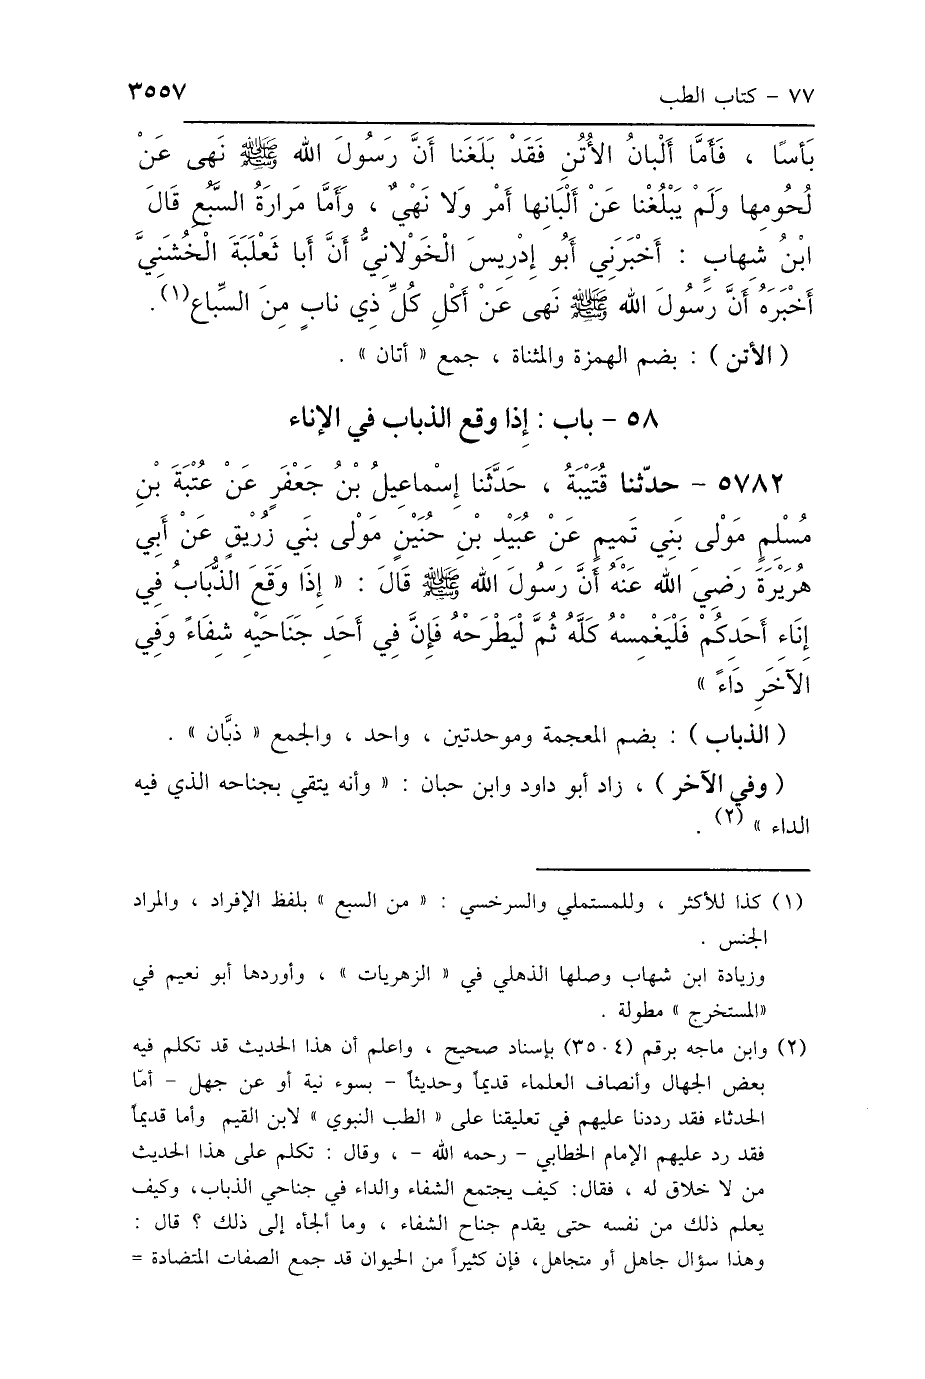 ٧٧ - كتاب الطب ٣٥٥٧
بَأسًا ، فَأَمَّا أَلْبانُ الأُتُنِ فَقَدْ بَلَغَنا أَنَّ رَسُولَ الله ﷺ نَهى عَنْ
لُحُومِها وَلَمْ يَبْلُغْنا عَنْ أَلْبَانِها أَمْر وَلا نَهْيٌ ، وَأَمَّا مَرارَةُ السَّبُعِ قَالَ
ابْنُ شِهابٍ : أَخْبَرَنِي أَبُو إِدْرِيسَ الْخَوْلانِيُّ أَنَّ أَبا ثَعْلَبَةَ الْخُشَنِيَّ
أَخْبَرَهُ أَنَّ رَسُولَ الله ﷺ نَهى عَنْ أَكْلِ كُلِّ ذِي نابٍ مِنَ السِّباعِ(١).
( الأتن ) : بضم الهمزة والمثناة ، جمع « أتان » .
٥٨ - باب : إذا وقع الذباب في الإناء
٥٧٨٢ - حدّثنا قُتَيْبَةُ ، حَدَّثَنا إِسْماعِيلُ بْنُ جَعْفَرٍ عَنْ عتْبَةَ بْنِ
مُسْلِمٍ مَوْلى بَنِي تَمِيمٍ عَنْ عُبَيْدِ بْنِ حُنَيْنٍ مَوْلى بني زُرَيْقٍ عَنْ أَبي
هُرَيْرَةَ رَضِيَ الله عَنْهُ أَنَّ رَسُولَ الله ﷺ قَالَ : « إِذَا وَقَعَ الذُّبَابُ فِي
إِنَاءِ أَحَدِكُمْ فَلْيَغْمِسْهُ كُلَّهُ ثُمَّ لْيَطْرَحْهُ فَإِنَّ فِي أَحَدِ جَنَاحَيْهِ شِفَاءً وَفِي
الآخَرِ دَاءً »
( الذباب ) : بضم المعجمة وموحدتين ، واحد ، والجمع « ذبَّان » .
( وفي الآخر ) ، زاد أبو داود وابن حبان : « وأنه يتقي بجناحه الذي فيه
الداء » (٢) .
(١) كذا للأكثر ، وللمستملي والسرخسي : « من السبع » بلفظ الإفراد ، والمراد
الجنس .
وزيادة ابن شهاب وصلها الذهلي في « الزهريات » ، وأوردها أبو نعيم في
«المستخرج » مطولة .
(٢) وابن ماجه برقم (٣٥٠٤) بإسناد صحيح ، واعلم أن هذا الحديث قد تكلم فيه
بعض الجهال وأنصاف العلماء قديماً وحديثاً - بسوء نية أو عن جهل - أمّا
الحدثاء فقد رددنا عليهم في تعليقنا على « الطب النبوي » لابن القيم وأما قديماً
فقد رد عليهم الإمام الخطابي - رحمه الله - ، وقال : تكلم على هذا الحديث
من لا خلاق له ، فقال: كيف يجتمع الشفاء والداء في جناحي الذباب، وكيف
يعلم ذلك من نفسه حتى يقدم جناح الشفاء ، وما ألجأه إلى ذلك ؟ قال :
وهذا سؤال جاهل أو متجاهل، فإن كثيراً من الحيوان قد جمع الصفات المتضادة =